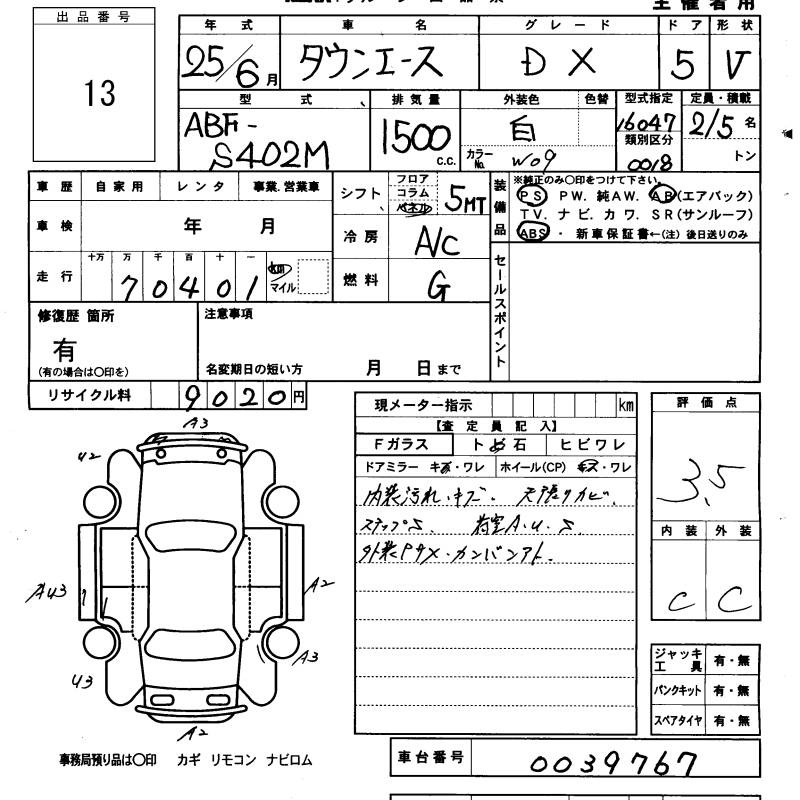 主催者用
出品番号
13
年式 車名 グレード ドア 形状
25/6月 タウンエース DX 5 V
型式 排気量 外装色 色替 型式指定 定員・積載
ABF-
S402M
1500 c.c.
白
カラーNo. W09
16047
類別区分
0018
2/5 名
トン
車歴 自家用 レンタ 事業.営業車
車検 年 月
走行 十万 万 千 百 十 一
70401 km
マイル
シフト フロア
コラム
パネル
5MT
冷房 A/C
燃料 G
装備品
※純正のみ〇印をつけて下さい。
PS PW. 純AW. AB(エアバック)
TV. ナビ. カワ. SR(サンルーフ)
ABS ・ 新車保証書←(注) 後日送りのみ
セールスポイント
修復歴 箇所
有
(有の場合は〇印を)
注意事項
名変期日の短い方 月 日まで
リサイクル料 9020円
現メーター指示 km
【査定員記入】
Fガラス トビ石 ヒビワレ
ドアミラー キズ・ワレ ホイール(CP) キズ・ワレ
内装汚れ・キズ. 天張りカビ.
ステップS. 荷室A.U.S.
外装PサX・カンバンアト.
評価点
3.5
内装 外装
C C
A3
U2
AU3
A2
U3
A3
A2
ジャッキ
工具
有・無
パンクキット 有・無
スペアタイヤ 有・無
事務局預り品は〇印 カギ リモコン ナビロム
車台番号 0039767